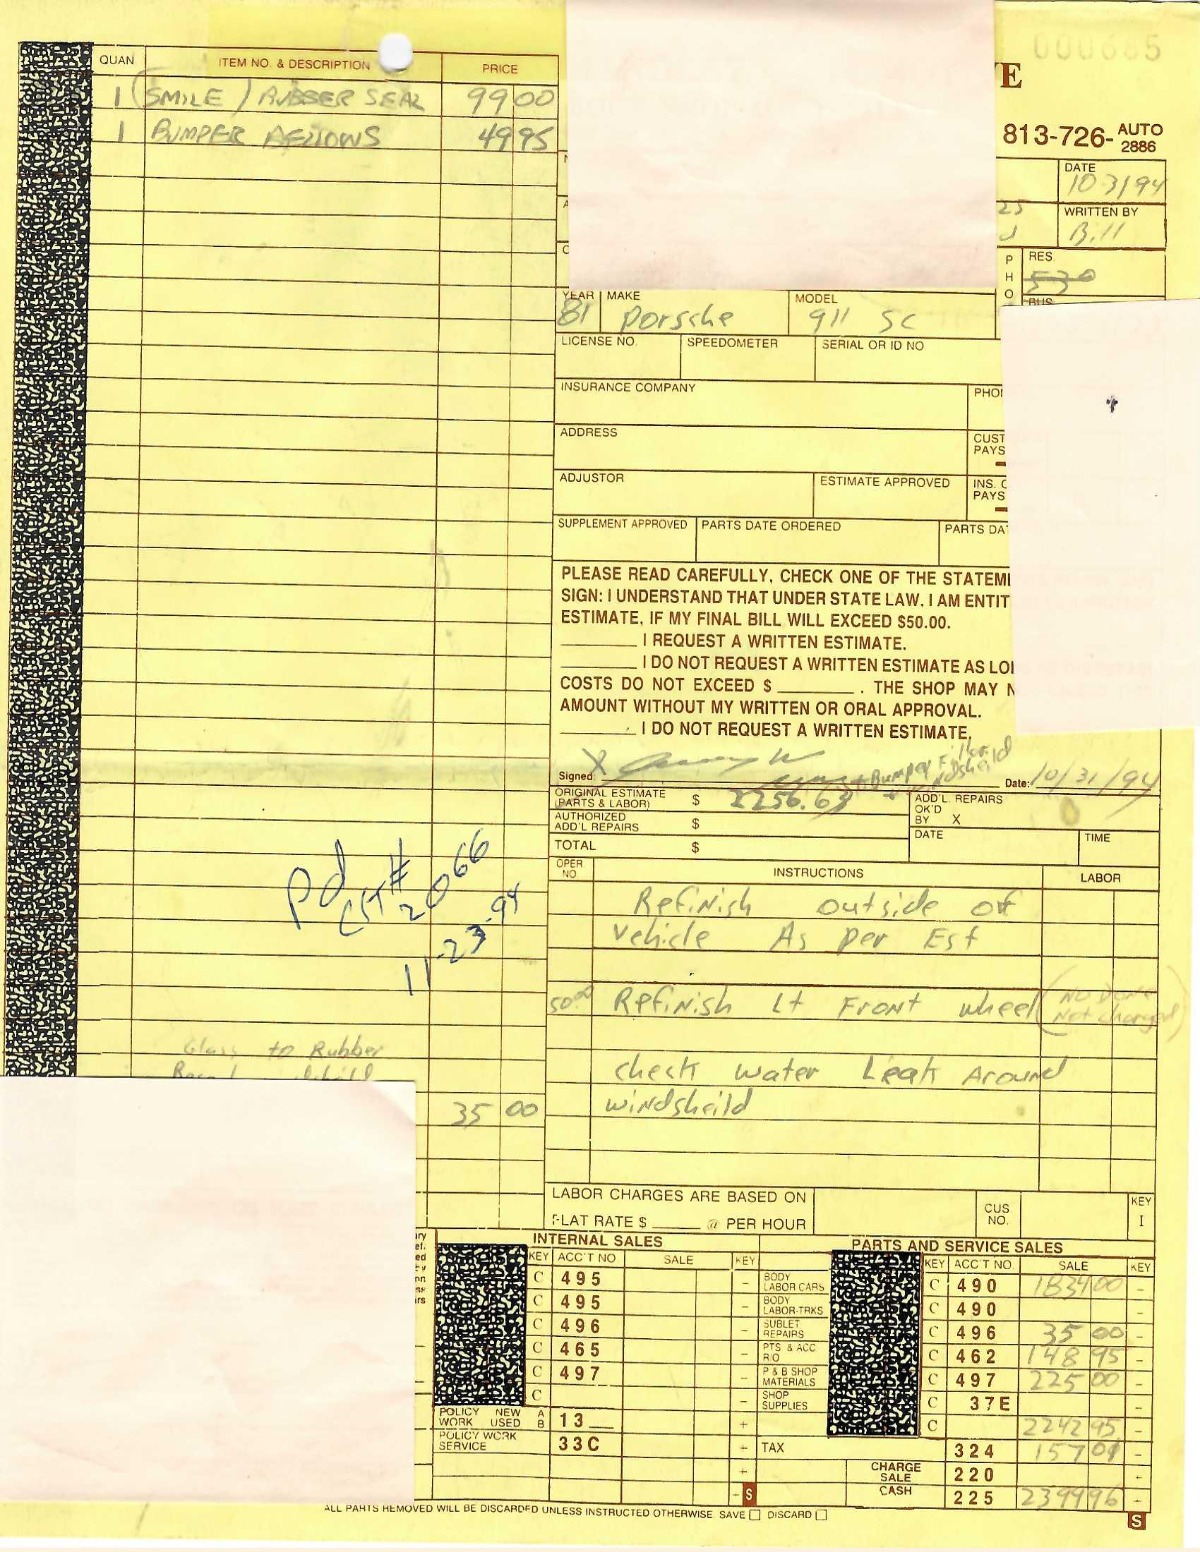 000685
E
813-726- AUTO 2886
QUAN ITEM NO. & DESCRIPTION PRICE
1 (SMILE) RUBBER SEAL 99 00
1 BUMPER BELLOWS 49 95
DATE
10/31/94
25
WRITTEN BY
Bill
PHO
RES.
530
BUS.
YEAR MAKE MODEL
81 Porsche 911 SC
LICENSE NO. SPEEDOMETER SERIAL OR ID NO
INSURANCE COMPANY
PHO
ADDRESS
CUST
PAYS
ADJUSTOR ESTIMATE APPROVED INS. C
PAYS
SUPPLEMENT APPROVED PARTS DATE ORDERED PARTS DA
PLEASE READ CAREFULLY, CHECK ONE OF THE STATEM
SIGN: I UNDERSTAND THAT UNDER STATE LAW, I AM ENTIT
ESTIMATE, IF MY FINAL BILL WILL EXCEED $50.00.
______ I REQUEST A WRITTEN ESTIMATE.
______ I DO NOT REQUEST A WRITTEN ESTIMATE AS LO
COSTS DO NOT EXCEED $ ______ . THE SHOP MAY N
AMOUNT WITHOUT MY WRITTEN OR ORAL APPROVAL.
______ I DO NOT REQUEST A WRITTEN ESTIMATE.
Signed: X Date: 10/31/94
+ Bumper
ORIGINAL ESTIMATE (PARTS & LABOR) $ 2256.63
ADD'L. REPAIRS OK'D BY X
AUTHORIZED ADD'L REPAIRS $
DATE TIME
TOTAL $
OPER. NO INSTRUCTIONS LABOR
Refinish outside of
Vehicle As per Est
50.00 Refinish Lt Front wheel (NO DONE
Not Charged)
check water Leak Around
windsheild
Pd
CST# 2066
11-23-94
Glass to Rubber
35 00
LABOR CHARGES ARE BASED ON
FLAT RATE $ ______ @ PER HOUR
CUS NO.
KEY
I
INTERNAL SALES
KEY ACC'T NO SALE KEY
C 495 -
C 495 -
C 496 -
C 465 -
C 497 -
C -
POLICY WORK NEW USED A B 13__ +
POLICY WORK SERVICE 33C -
+
- S
PARTS AND SERVICE SALES
KEY ACC'T NO. SALE KEY
BODY LABOR CARS C 490 1834 00 -
BODY LABOR-TRKS C 490 -
SUBLET REPAIRS C 496 35 00 -
PTS & ACC R/O C 462 148 95 -
P & B SHOP MATERIALS C 497 225 00 -
SHOP SUPPLIES C 37E
C 2242 95 -
TAX 324 157 01 -
CHARGE SALE 220 -
CASH 225 2399 96 -
S
ALL PARTS REMOVED WILL BE DISCARDED UNLESS INSTRUCTED OTHERWISE. SAVE ☐ DISCARD ☐